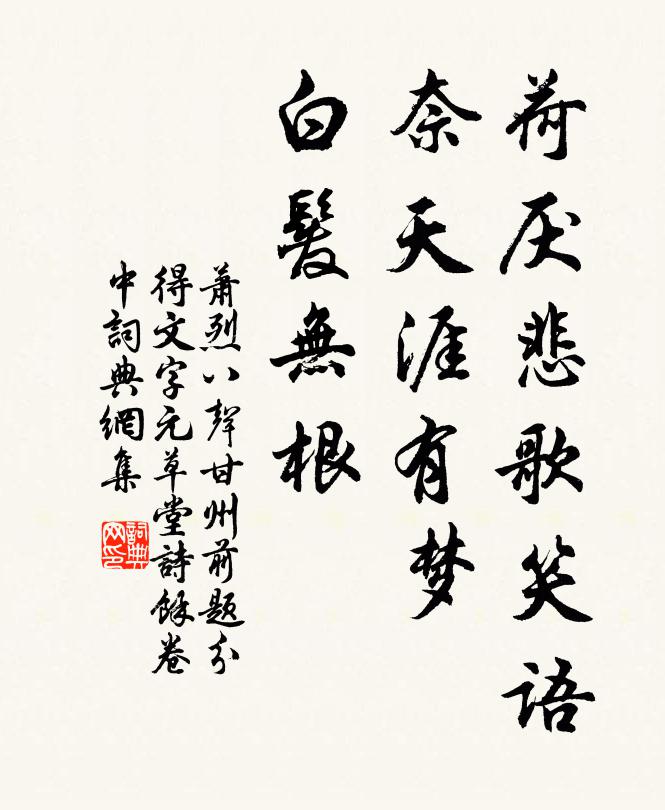 荷厌悲歌笑语
奈天涯有梦
白髮無根
萧烈八聲甘州前题分
得文字元草堂詩餘卷
中詞典網集
詞典网印